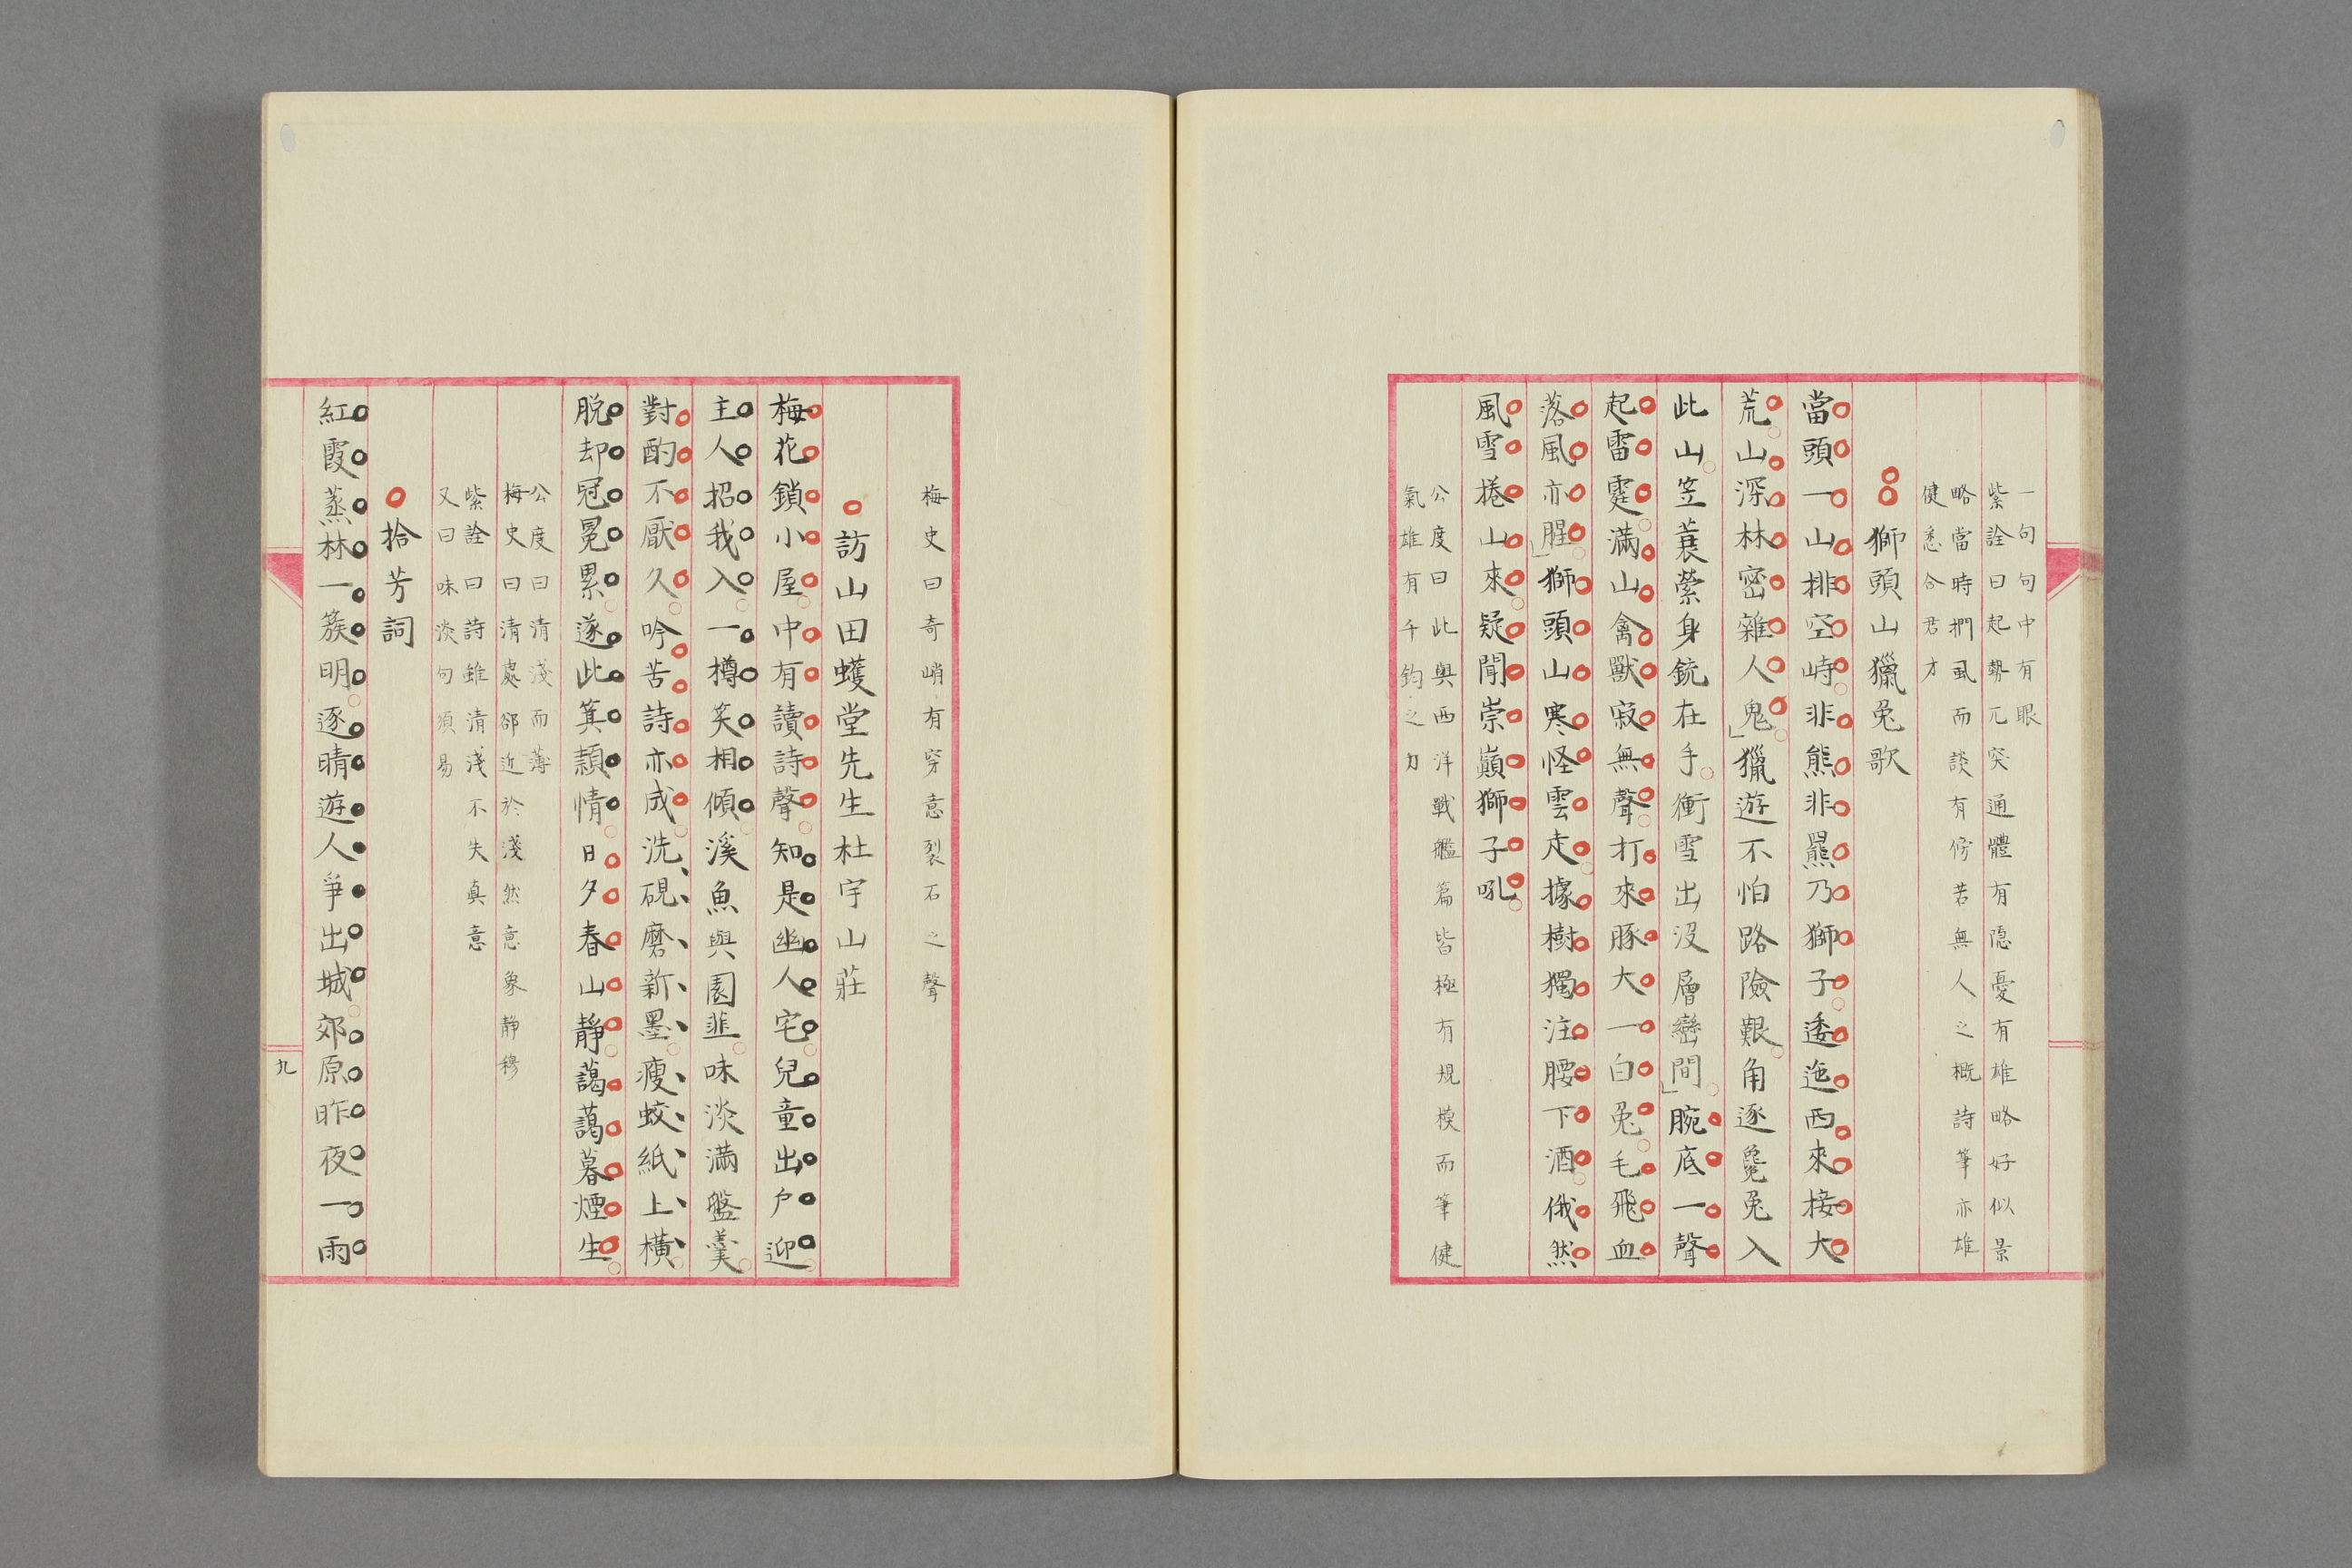 一句句中有眼
紫詮曰起勢兀突通體有隠憂有雄略好似景
略當時捫虱而談有傍若無人之概詩筆亦雄
健悉合君才
獅頭山獵兔歌
當頭一山排空峙非熊非羆乃獅子逶迤西來接大
荒山深林密雜人鬼」獵遊不怕路險艱角逐毚兔入
此山笠蓑縈身銃在手衝雪出沒層巒間」腕底一聲
起雷霆滿山禽獸寂無聲打來豚大一白兔毛飛血
落風亦腥」獅頭山寒怪雲走據樹獨注腰下酒俄然
風雪捲山來疑聞崇巔獅子吼
公度曰此與西洋戰艦篇皆極有規模而筆健
氣雄有千鈞之力
梅史曰奇峭有穿意裂石之聲
訪山田蠖堂先生杜宇山莊
梅花鎖小屋中有讀詩聲知是幽人宅兒童出戶迎
主人招我入一樽笑相傾溪魚與園韭味淡滿盤羹
對酌不厭久吟苦詩亦成洗硯磨新墨瘦蛟紙上橫
脱却冠冕累遂此箕潁情日夕春山靜藹藹暮煙生
公度曰清淺而薄
梅史曰清處郤近於淺然意象靜穆
紫詮曰詩雖清淺不失真意
又曰味淡句須易
拾芳詞
紅霞蒸林一簇明逐晴遊人爭出城郊原昨夜一雨
九